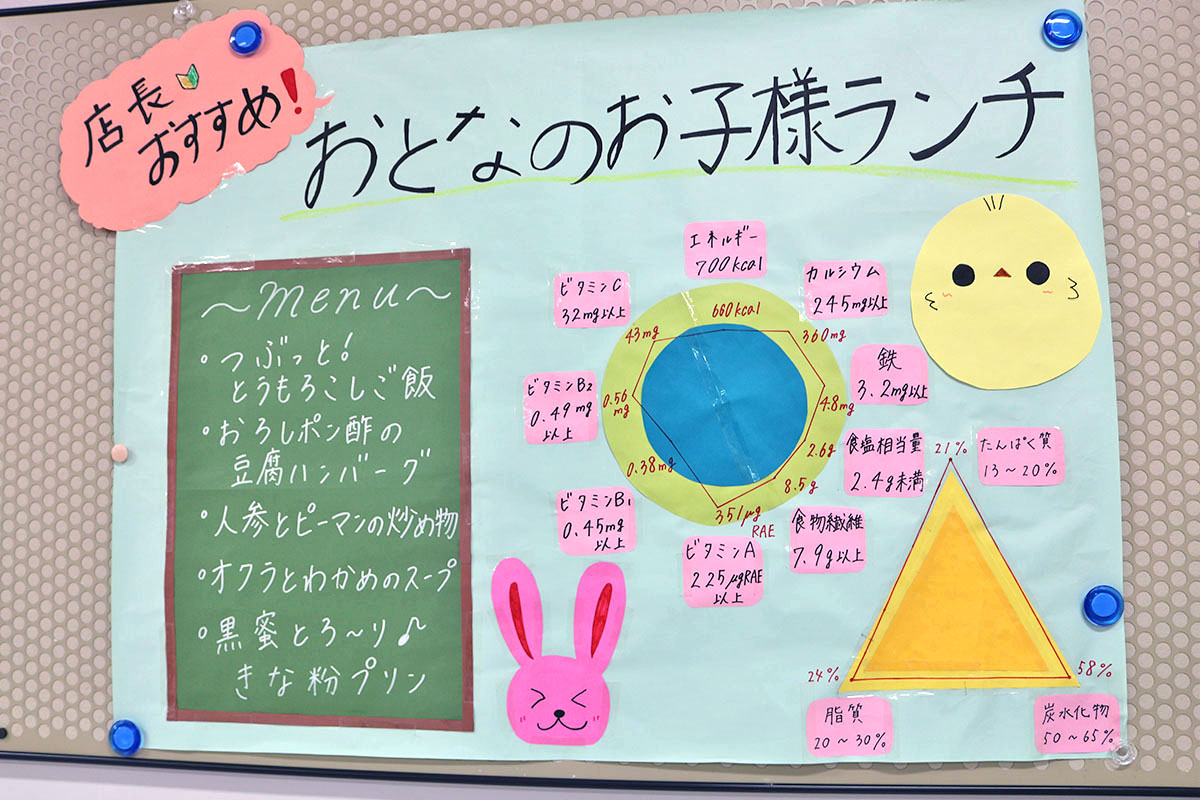 店長
おすすめ!
おとなのお子様ランチ
〜menu〜
・つぶっと!
とうもろこしご飯
・おろしポン酢の
豆腐ハンバーグ
・人参とピーマンの炒め物
・オクラとわかめのスープ
・黒蜜とろ〜り♪
きな粉プリン
エネルギー
700kcal
カルシウム
245mg以上
鉄
3.2mg以上
食塩相当量
2.4g未満
食物繊維
7.9g以上
ビタミンA
225μgRAE
以上
ビタミンB₁
0.45mg
以上
ビタミンB₂
0.49mg
以上
ビタミンC
32mg以上
660kcal
360mg
4.8mg
2.6g
8.5g
351μg
RAE
0.38mg
0.56
mg
43mg
21%
たんぱく質
13〜20%
24%
脂質
20〜30%
58%
炭水化物
50〜65%